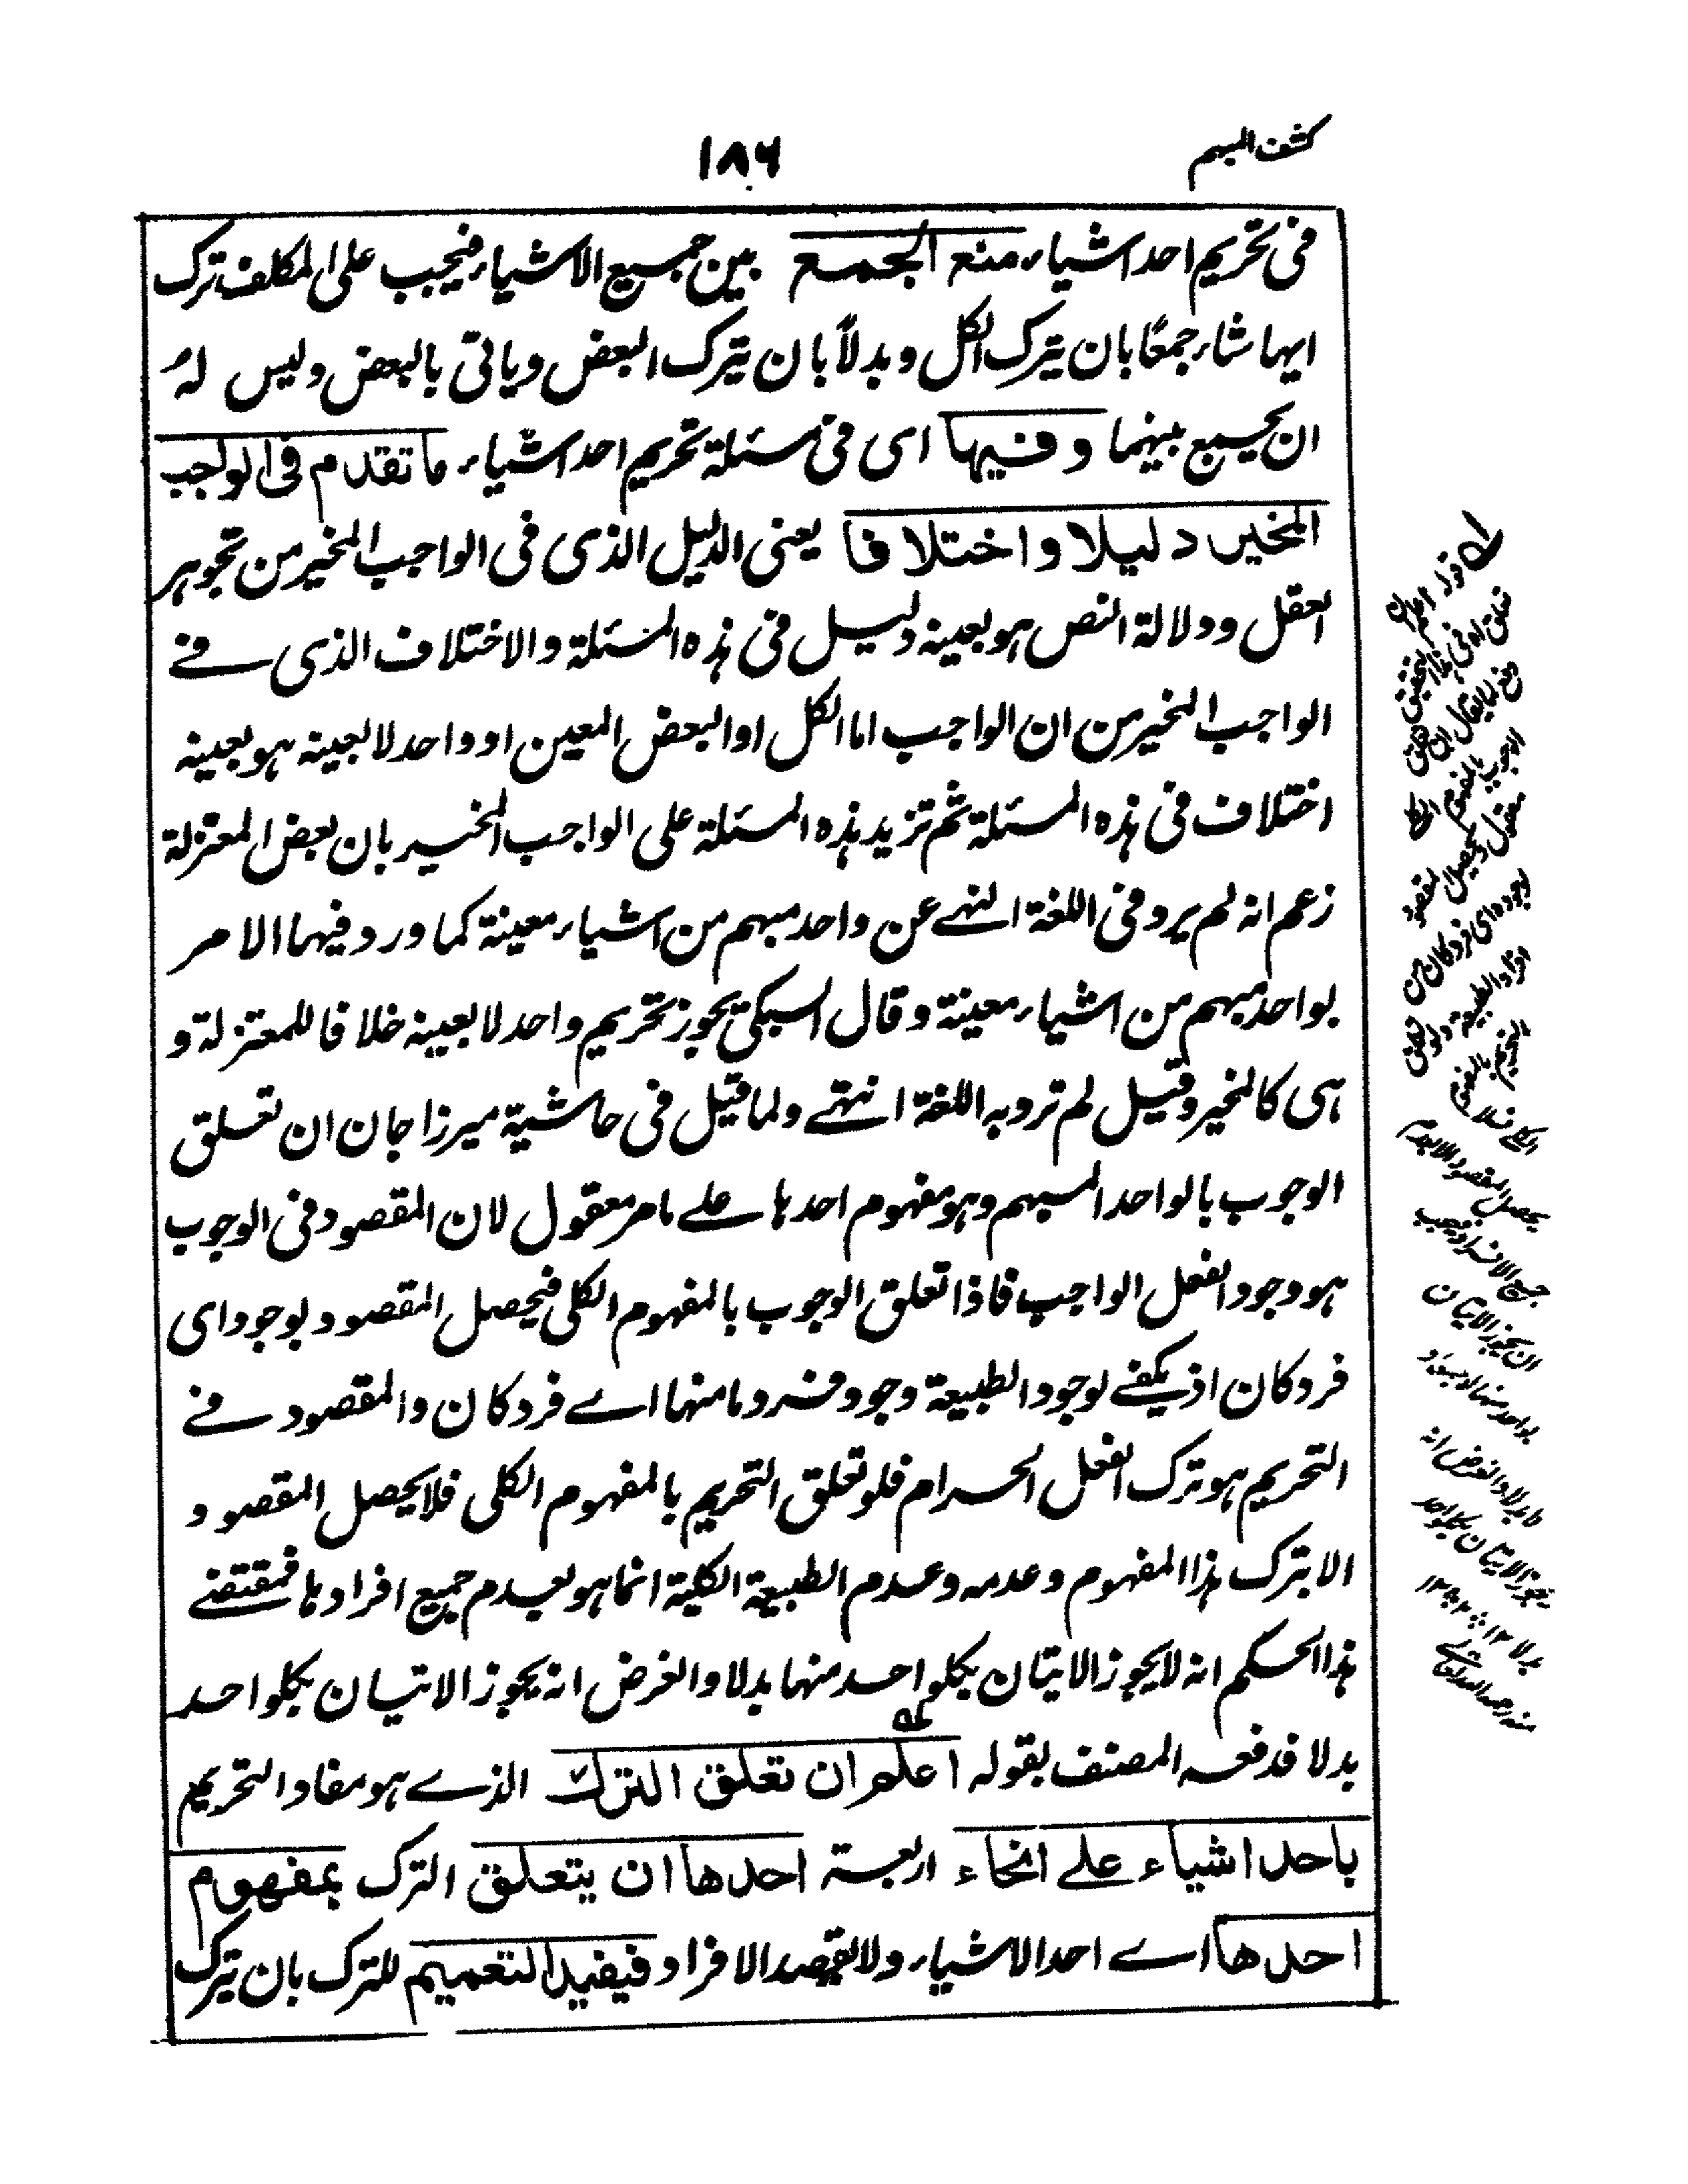 كشف المبهم
١٨٦
فى تحريم احد اشياء منع الجمع بين جميع الاشياء فيجب على المكلف ترك
ايها شاء جمعًا بان يترك الكل و بدلاً بان يترك البعض و ياتى بالبعض و ليس له
ان يجمع بينهما و فيها اى فى مسئلة تحريم احد اشياء ما تقدم فى الواجب
المخير دليلا و اختلافا يعنى الدليل الذى فى الواجب المخير من تجوهر
العقل و دلالة النص هو بعينه دليل فى هذه المسئلة و الاختلاف الذى فى
الواجب المخير من ان الواجب اما الكل او البعض المعين او واحد لا بعينه هو بعينه
اختلاف فى هذه المسئلة ثم تزيد هذه المسئلة على الواجب المخير بان بعض المعتزلة
زعم انه لم يرد فى اللغة النهى عن واحد مبهم من اشياء معينة كما ورد فيها الامر
بواحد مبهم من اشياء معينة و قال السبكى يجوز تحريم واحد لا بعينه خلافا للمعتزلة و
هى كالمخير و قيل لم ترد به اللغة انتهى و لما قيل فى حاشية ميرزا جان ان تعلق
الوجوب بالواحد المبهم و هو مفهوم احدها على ما مر معقول لان المقصود فى الوجوب
هو وجود الفعل الواجب فاذا تعلق الوجوب بالمفهوم الكلى فيحصل المقصود بوجود اى
فرد كان اذ يكفى لوجود الطبيعة وجود فرد ما منها اى فرد كان و المقصود فى
التحريم هو ترك الفعل الحرام فلو تعلق التحريم بالمفهوم الكلى فلا يحصل المقصود
الا بترك هذا المفهوم و عدمه و عدم الطبيعة الكلية انما هو بعدم جميع افرادها فمقتضى
هذا الحكم انه لا يجوز الاتيان بكل واحد منها بدلا و الغرض انه يجوز الاتيان بكل واحد
بدلا فدفعه المصنف بقوله اعلم ان تعلق الترك الذى هو مفاد التحريم
باحد اشياء على انحاء اربعة احدها ان يتعلق الترك بمفهوم
احدها اى احد الاشياء و لا يقصد الافراد فيفيد التعميم للترك بان يترك
قوله اعلم ان
بوجود اى فرد كان من
يحصل المقصود الا بعدم
جميع الافراد فيجب
ان يجوز الاتيان
بواحد منها لا
بدلا و الغرض انه
يجوز الاتيان بكل واحد
بدلا ١٢
منه رحمه الله تعالى